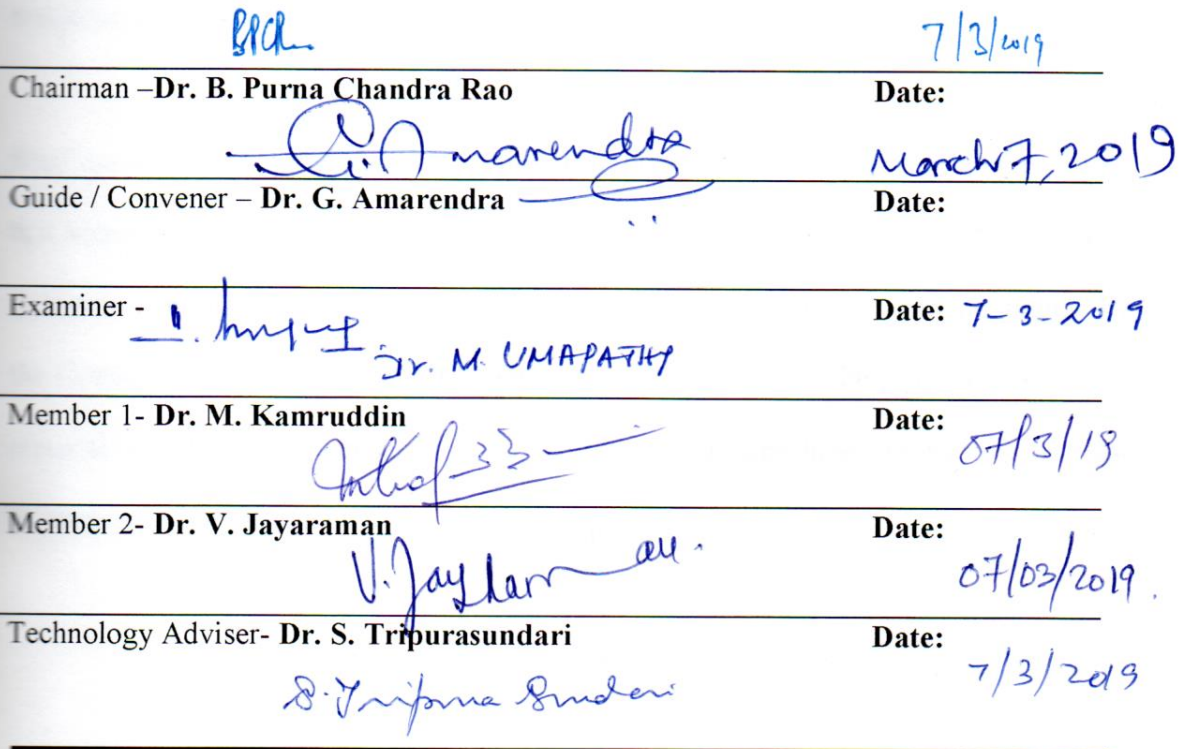 7/3/2019
Chairman –Dr. B. Purna Chandra Rao Date:
G. Amarendra March 7, 2019
Guide / Convener – Dr. G. Amarendra Date:
Examiner - Date: 7-3-2019
Dr. M. UMAPATHY
Member 1- Dr. M. Kamruddin Date:
07/3/19
Member 2- Dr. V. Jayaraman Date:
V. Jayaraman 07/03/2019.
Technology Adviser- Dr. S. Tripurasundari Date:
S. Tripura Sundari 7/3/2019